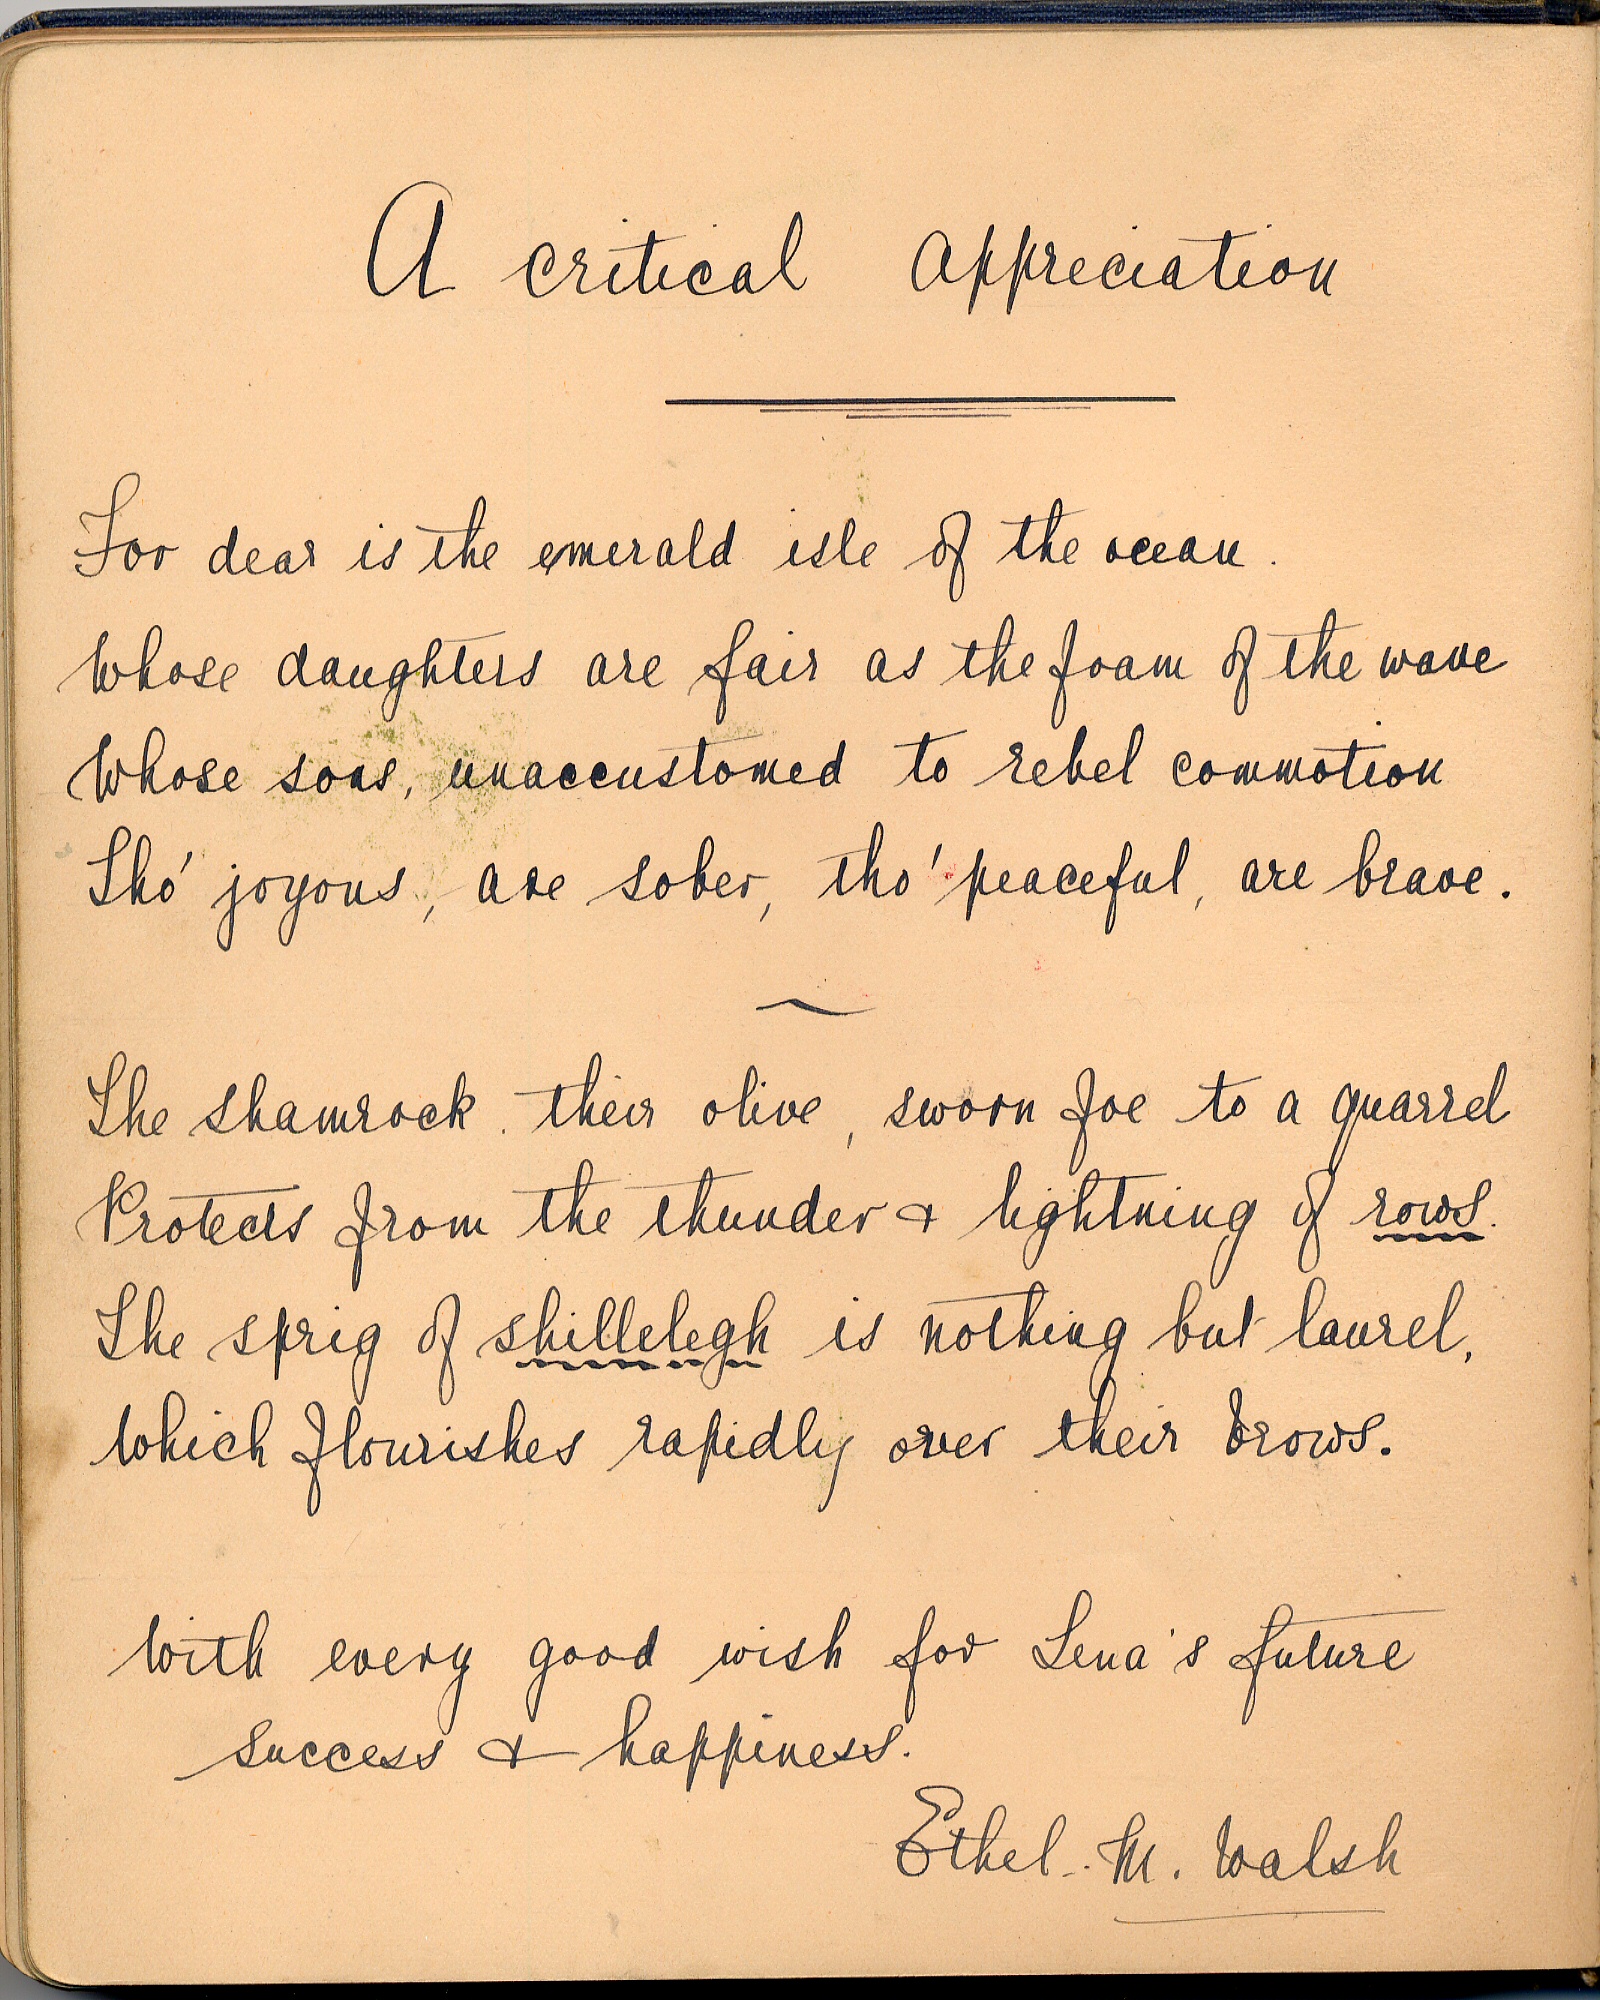 A critical appreciation
For dear is the emerald isle of the ocean.
Whose daughters are fair as the foam of the wave
Whose sons, unaccustomed to rebel commotion
Tho' joyous, are sober, tho' peaceful, are brave.
The shamrock. their olive, sworn foe to a quarrel
Protects from the thunder & lightning of rows.
The sprig of shillelegh is nothing but laurel,
Which flourishes rapidly over their brows.
With every good wish for Lena's future
success & happiness.
Ethel. M. Walsh